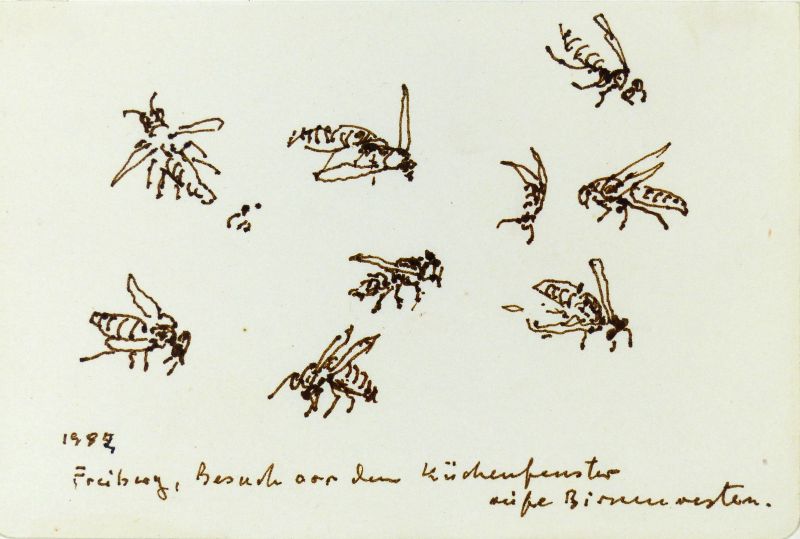 Freiburg, Besuch vor dem Küchenfenster
Birnenresten.